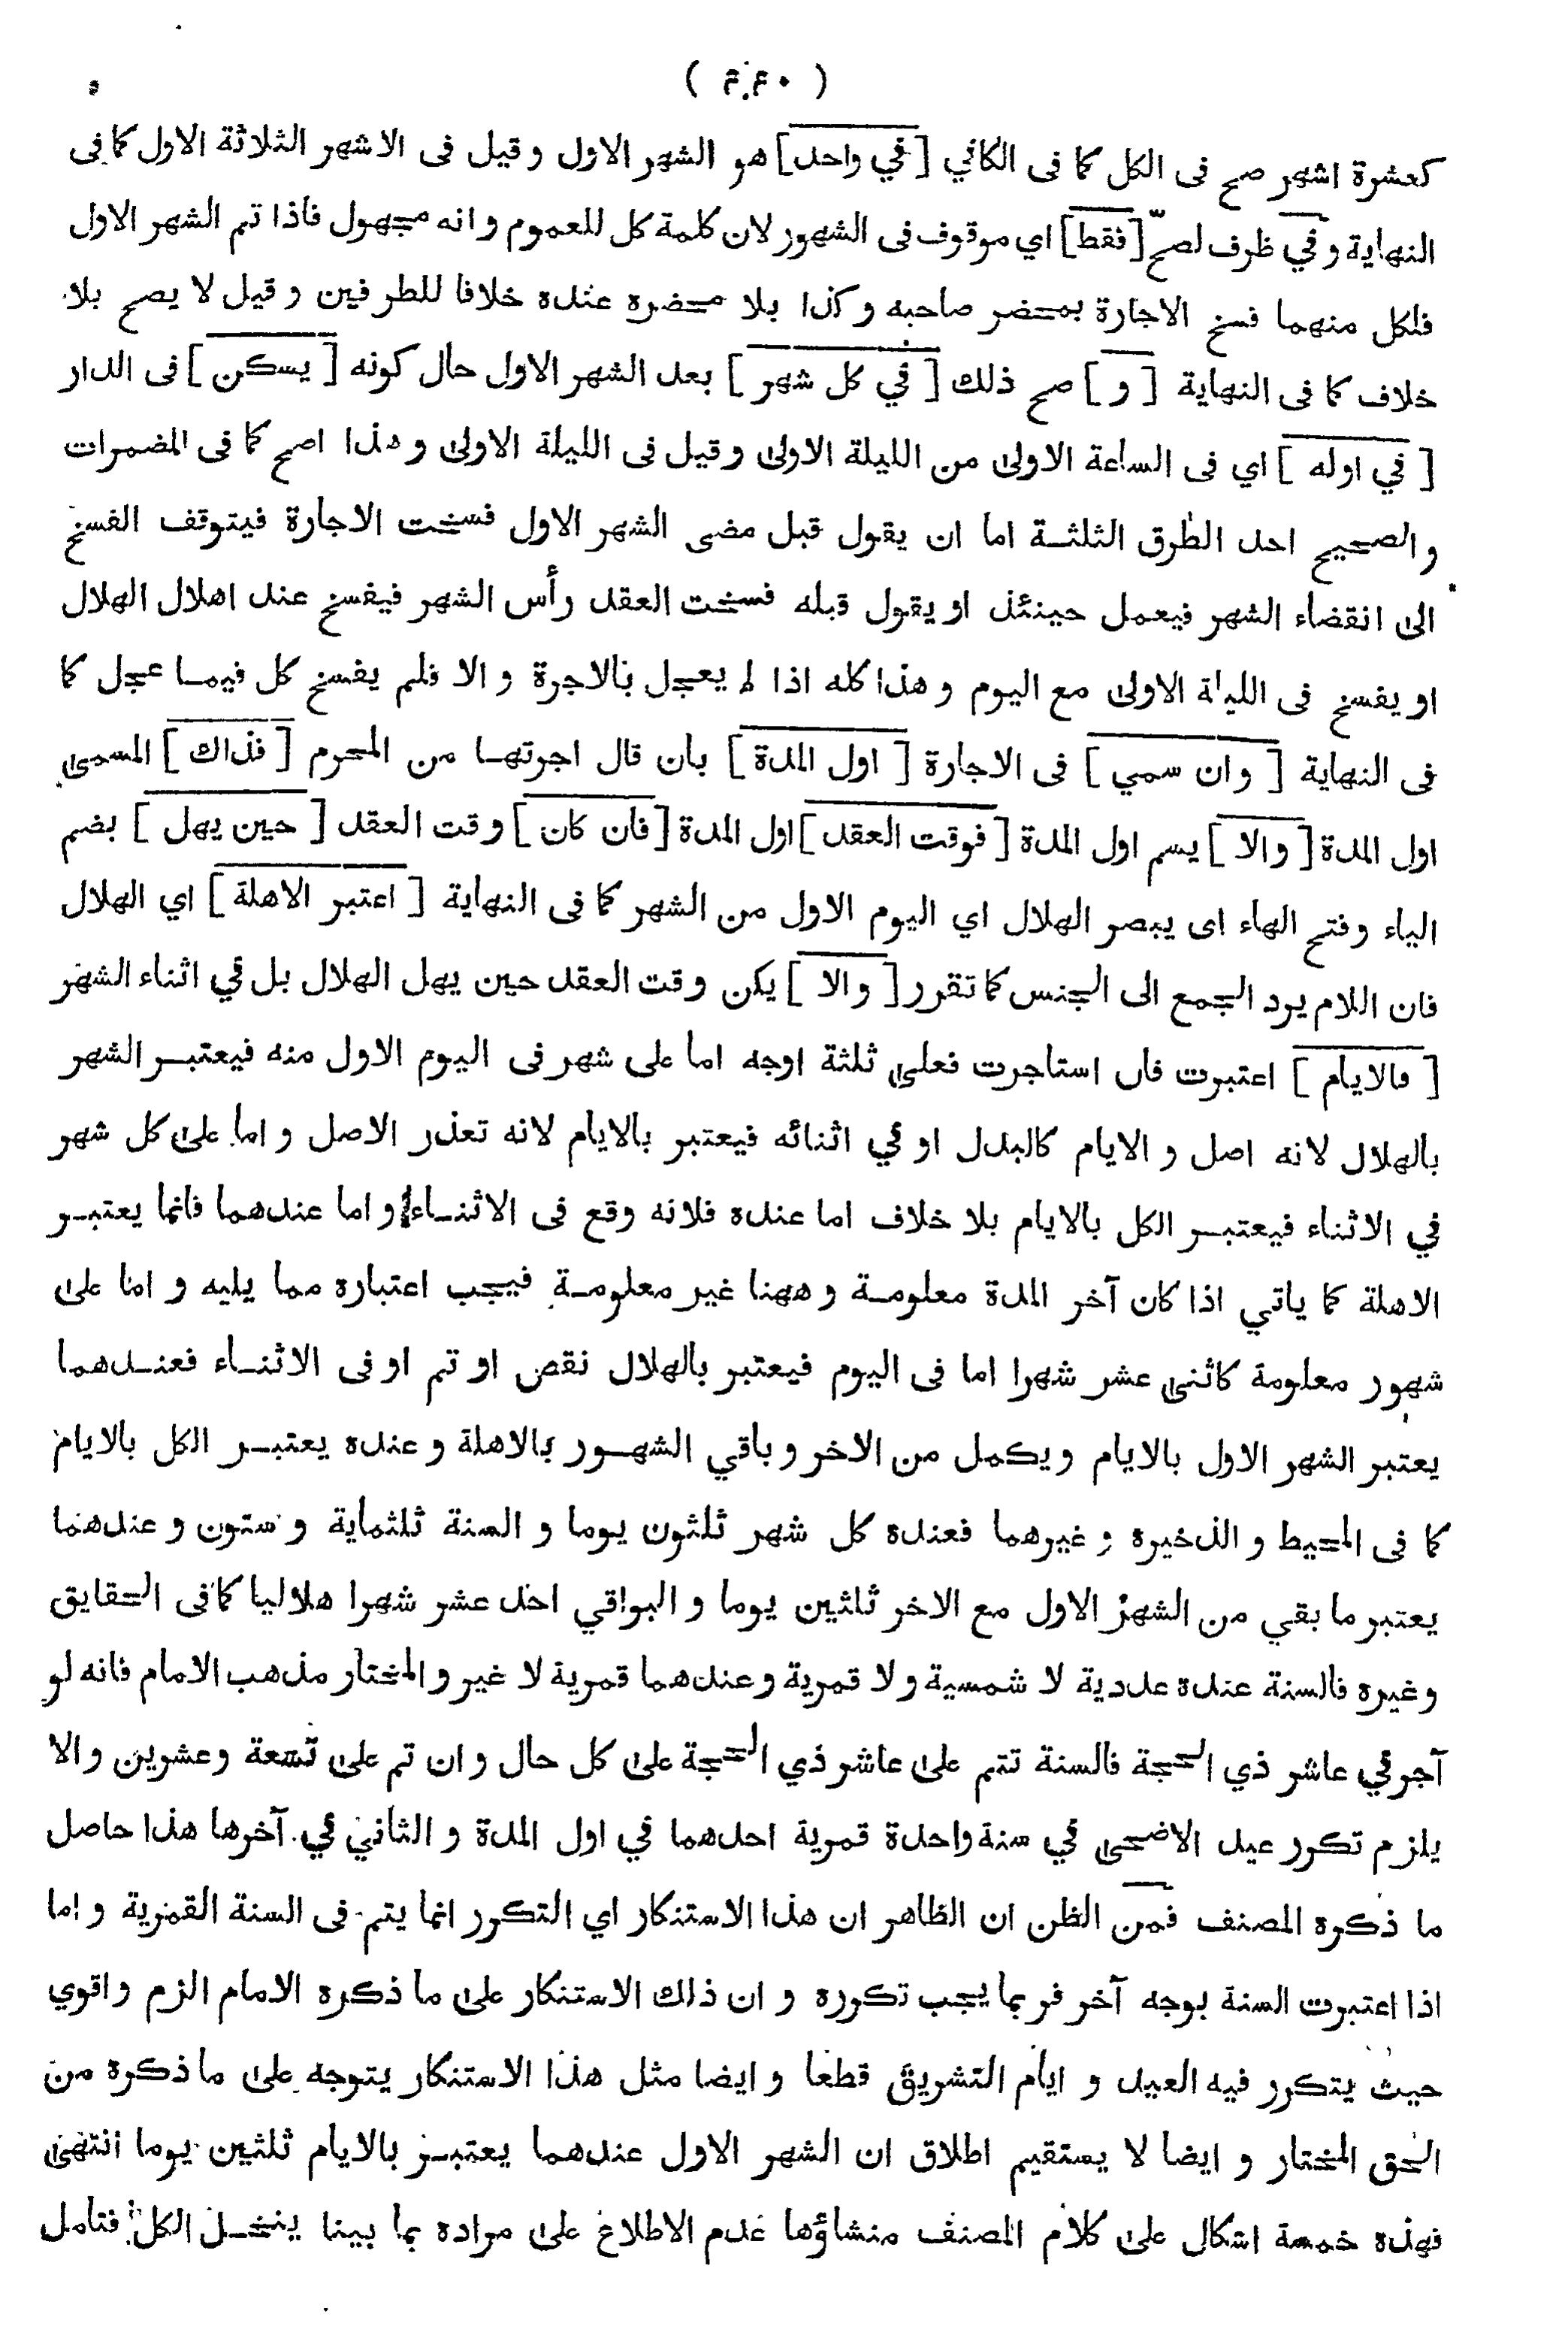 ( ٤٤٠ )
كعشرة اشهر صح فى الكل كما فى الكافي [ في واحد ] هو الشهر الاول و قيل فى الاشهر الثلاثة الاول كما فى
النهاية و في ظرف لصحّ [ فقط ] اي موقوف فى الشهور لان كلمة كل للعموم و انه مجهول فاذا تم الشهر الاول
فلكل منهما فسخ الاجارة بمحضر صاحبه و كذا بلا محضره عنده خلافا للطرفين و قيل لا يصح بلا
خلاف كما فى النهاية [ و ] صح ذلك [ في كل شهر ] بعد الشهر الاول حال كونه [ يسكن ] فى الدار
[ في اوله ] اي فى الساعة الاولى من الليلة الاولى و قيل فى الليلة الاولى و هذا اصح كما فى المضمرات
و الصحيح احد الطرق الثلثة اما ان يقول قبل مضى الشهر الاول فسخت الاجارة فيتوقف الفسخ
الى انقضاء الشهر فيعمل حينئذ او يقول قبله فسخت العقد رأس الشهر فيفسخ عند اهلال الهلال
او يفسخ فى الليلة الاولى مع اليوم و هذا كله اذا لم يعجل بالاجرة و الا فلم يفسخ كل فيما عجل كما
فى النهاية [ و ان سمي ] فى الاجارة [ اول المدة ] بان قال اجرتها من المحرم [ فذاك ] المسمى
اول المدة [ و الا ] يسم اول المدة [ فوقت العقد ] اول المدة [ فان كان ] و قت العقد [ حين يهل ] بضم
الياء و فتح الهاء اى يبصر الهلال اي اليوم الاول من الشهر كما فى النهاية [ اعتبر الاهلة ] اي الهلال
فان اللام يرد الجمع الى الجنس كما تقرر [ و الا ] يكن و قت العقد حين يهل الهلال بل في اثناء الشهر
[ فالايام ] اعتبرت فان استاجرت فعلى ثلثة اوجه اما على شهر فى اليوم الاول منه فيعتبر الشهر
بالهلال لانه اصل و الايام كالبدل او في اثنائه فيعتبر بالايام لانه تعذر الاصل و اما على كل شهر
في الاثناء فيعتبر الكل بالايام بلا خلاف اما عنده فلانه وقع فى الاثناء و اما عندهما فانما يعتبر
الاهلة كما ياتي اذا كان آخر المدة معلومة و ههنا غير معلومة فيجب اعتباره مما يليه و اما على
شهور معلومة كاثنى عشر شهرا اما فى اليوم فيعتبر بالهلال نقص او تم او فى الاثناء فعندهما
يعتبر الشهر الاول بالايام و يكمل من الاخر و باقي الشهور بالاهلة و عنده يعتبر الكل بالايام
كما فى المحيط و الذخيرة و غيرهما فعنده كل شهر ثلثون يوما و السنة ثلثماية و ستون و عندهما
يعتبر ما بقي من الشهر الاول مع الاخر ثلثين يوما و البواقي احد عشر شهرا هلاليا كما فى الحقايق
و غيره فالسنة عنده عددية لا شمسية و لا قمرية و عندهما قمرية لا غير و المختار مذهب الامام فانه لو
آجر في عاشر ذي الحجة فالسنة تتم على عاشر ذي الحجة على كل حال و ان تم على تسعة و عشرين و الا
يلزم تكرر عيد الاضحى في سنة واحدة قمرية احدهما في اول المدة و الثاني في آخرها هذا حاصل
ما ذكره المصنف فمن الظن ان الظاهر ان هذا الاستنكار اي التكرر انما يتم فى السنة القمرية و اما
اذا اعتبرت السنة بوجه آخر فربما يجب تكرره و ان ذلك الاستنكار على ما ذكره الامام الزم و اقوي
حيث يتكرر فيه العيد و ايام التشريق قطعا و ايضا مثل هذا الاستنكار يتوجه على ما ذكره من
الحق المختار و ايضا لا يستقيم اطلاق ان الشهر الاول عندهما يعتبر بالايام ثلثين يوما انتهى
فهذه خمسة اشكال على كلام المصنف منشاؤها عدم الاطلاع على مراده بما بينا ينحل الكل فتامل